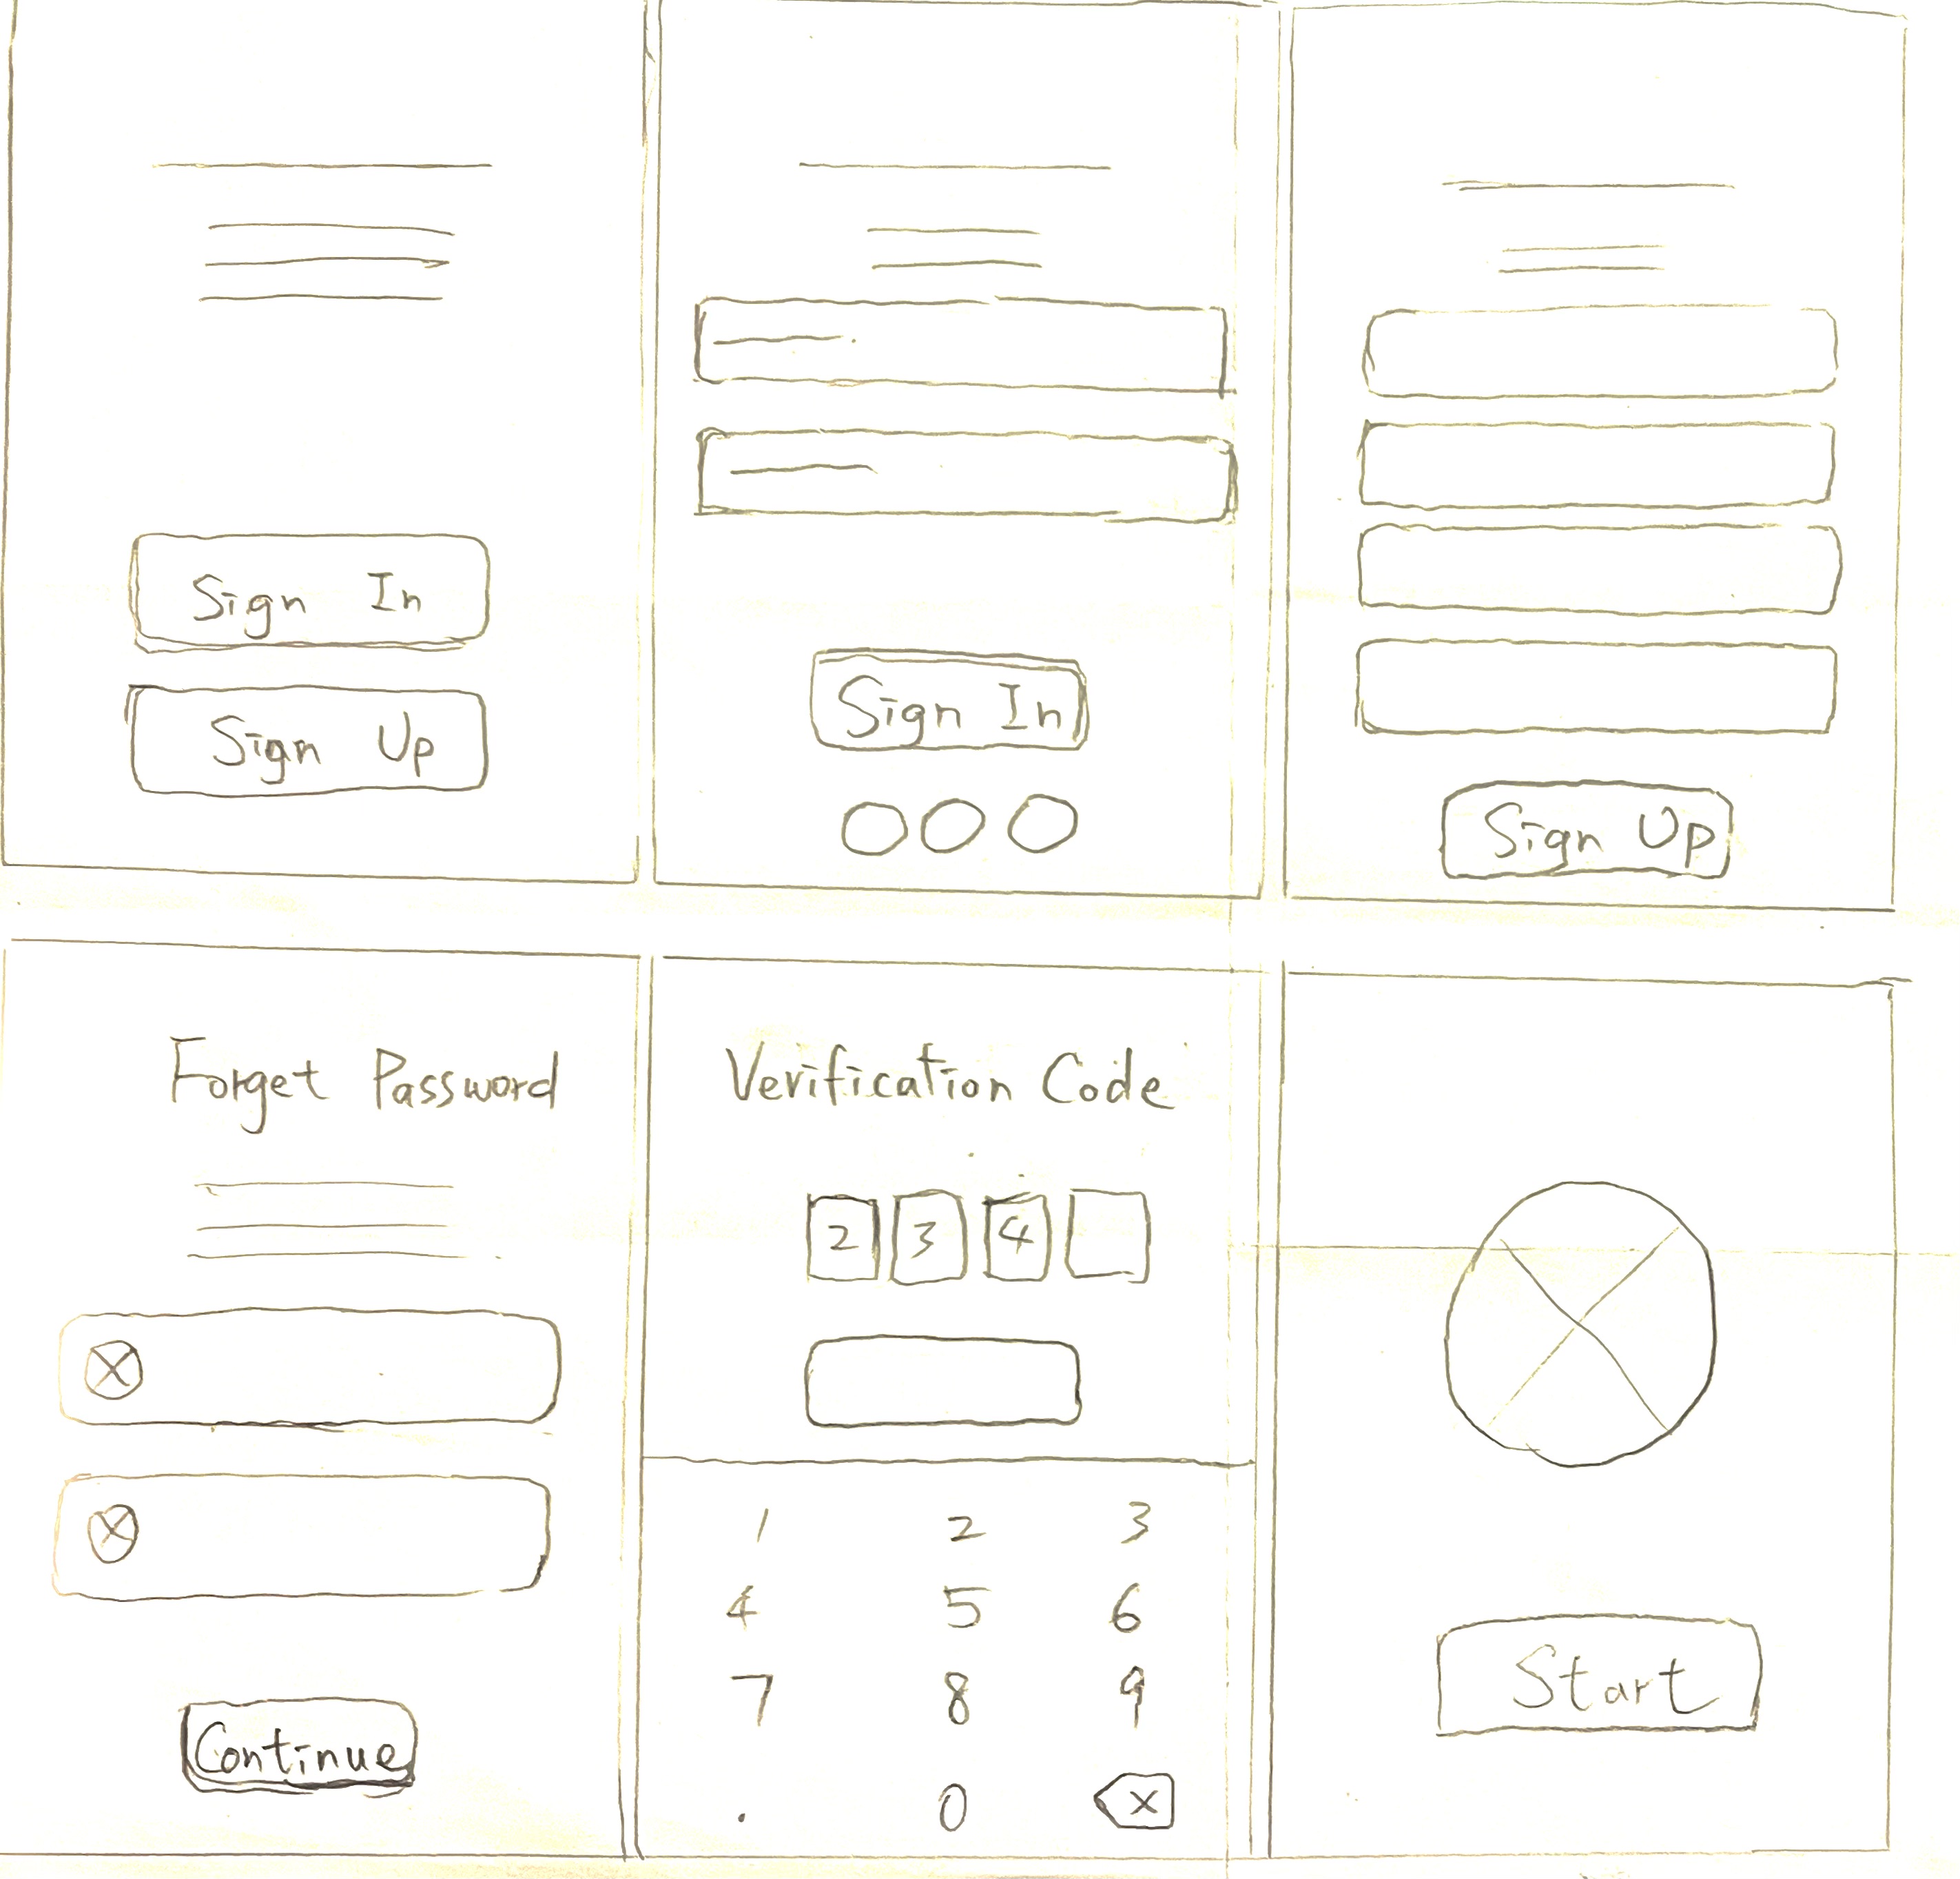 Sign In
Sign Up
Sign In
Sign Up
Forget Password
Continue
Verification Code
2 3 4
1 2 3
4 5 6
7 8 9
. 0 X
Start